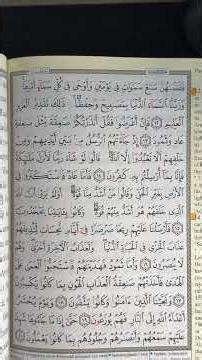 فَقَضَىٰهُنَّ سَبْعَ سَمَٰوَاتٍ فِي يَوْمَيْنِ وَأَوْحَىٰ فِي كُلِّ سَمَآءٍ أَمْرَهَا
وَزَيَّنَّا ٱلسَّمَآءَ ٱلدُّنْيَا بِمَصَٰبِيحَ وَحِفْظًا ذَٰلِكَ تَقْدِيرُ ٱلْعَزِيزِ
ٱلْعَلِيمِ ١٢ فَإِنْ أَعْرَضُوا۟ فَقُلْ أَنذَرْتُكُمْ صَٰعِقَةً مِّثْلَ صَٰعِقَةِ
عَادٍ وَثَمُودَ ١٣ إِذْ جَآءَتْهُمُ ٱلرُّسُلُ مِنۢ بَيْنِ أَيْدِيهِمْ وَمِنْ
خَلْفِهِمْ أَلَّا تَعْبُدُوٓا۟ إِلَّا ٱللَّهَ قَالُوا۟ لَوْ شَآءَ رَبُّنَا لَأَنزَلَ مَلَٰٓئِكَةً
فَإِنَّا بِمَآ أُرْسِلْتُم بِهِۦ كَٰفِرُونَ ١٤ فَأَمَّا عَادٌ فَٱسْتَكْبَرُوا۟ فِي
ٱلْأَرْضِ بِغَيْرِ ٱلْحَقِّ وَقَالُوا۟ مَنْ أَشَدُّ مِنَّا قُوَّةً أَوَلَمْ يَرَوْا۟ أَنَّ ٱللَّهَ
ٱلَّذِي خَلَقَهُمْ هُوَ أَشَدُّ مِنْهُمْ قُوَّةً وَكَانُوا۟ بِـَٔايَٰتِنَا يَجْحَدُونَ ١٥
فَأَرْسَلْنَا عَلَيْهِمْ رِيحًا صَرْصَرًا فِيٓ أَيَّامٍ نَّحِسَاتٍ لِّنُذِيقَهُمْ
عَذَابَ ٱلْخِزْيِ فِي ٱلْحَيَوٰةِ ٱلدُّنْيَا وَلَعَذَابُ ٱلْءَاخِرَةِ أَخْزَىٰ وَهُمْ
لَا يُنصَرُونَ ١٦ وَأَمَّا ثَمُودُ فَهَدَيْنَٰهُمْ فَٱسْتَحَبُّوا۟ ٱلْعَمَىٰ عَلَى
ٱلْهُدَىٰ فَأَخَذَتْهُمْ صَٰعِقَةُ ٱلْعَذَابِ ٱلْهُونِ بِمَا كَانُوا۟ يَكْسِبُونَ ١٧
وَنَجَّيْنَا ٱلَّذِينَ ءَامَنُوا۟ وَكَانُوا۟ يَتَّقُونَ ١٨ وَيَوْمَ يُحْشَرُ
أَعْدَآءُ ٱللَّهِ إِلَى ٱلنَّارِ فَهُمْ يُوزَعُونَ ١٩ حَتَّىٰٓ إِذَا مَا جَآءُوهَا شَهِدَ
عَلَيْهِمْ سَمْعُهُمْ وَأَبْصَٰرُهُمْ وَجُلُودُهُم بِمَا كَانُوا۟ يَعْمَلُونَ ٢٠